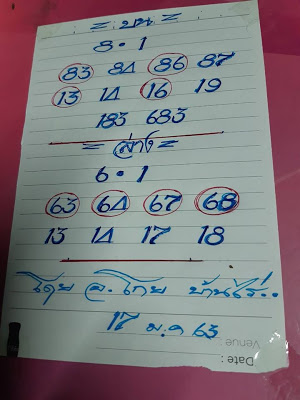 = บน =
8 • 1
83 84 86 87
13 14 16 19
183 683
= ล่าง =
6 • 1
63 64 67 68
13 14 17 18
โดย อ. โกย บ้านไร่..
17 ม.ค 63
Venue :
Date :